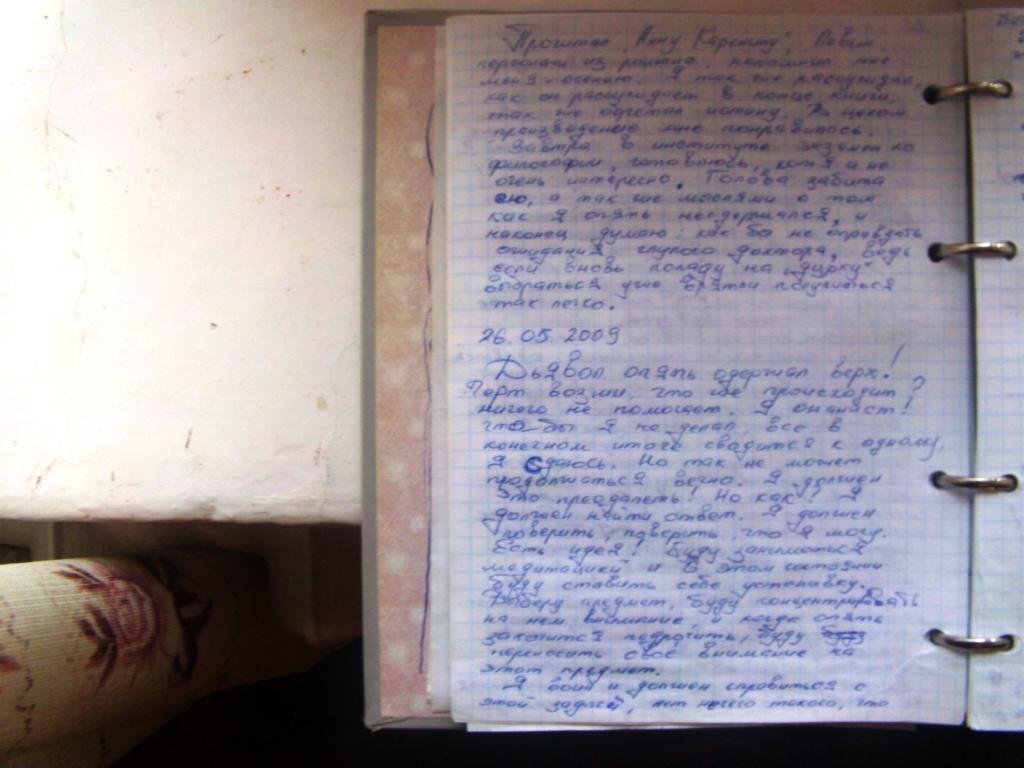 Прочитал „Анну Каренину", Левин
персонаж из романа, напомнил мне
меня - осенью. Я так же рассуждал,
как он рассуждает в конце книги,
так же обретал истину. В целом
произведение мне понравилось.
Завтра в институте экзамен по
философии, готовлюсь, хотя и не
очень интересно. Голова забита
ею, а так же мыслями о том
как я опять несдержался, и
наконец думаю: как бы не оправдать
ожидания глупого доктора, ведь
если вновь попаду на „дурку"
выбраться уже врятли получиться
так легко.
26.05.2009
Дьявол опять одержал верх!
Черт возьми, что же происходит?
ничего не помогает. Я онанист!
что бы я не делал, все в
конечном итоге сводится к одному.
Я сдаюсь. Но так не может
продолжаться вечно. Я должен
это преодалеть! Но как? Я
должен найти ответ. Я должен
поверить, поверить, что я могу.
Есть идея! Буду заниматься
медитацией и в этом состоянии
буду ставить себе установку.
Выберу предмет, буду концентрировать
на нем внимание, и когда опять
захочится подрочить, буду
переносить свое внимание на
этот предмет.
Я воин и должен справиться с
этой задачей, нет ничего такого, что